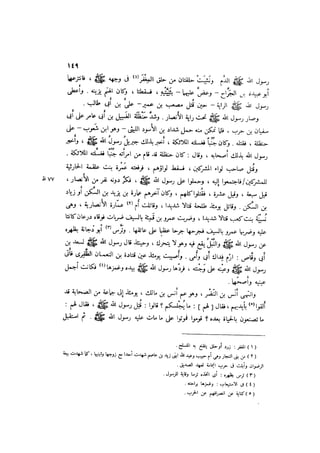 ١٤٩
رسول الله ﷺ الدم ونشبت حلقتان من حلق المِغْفَر (١) فى وجهه ﷺ ، فانتزعهما
أبو عبيدة بن الجرّاح – وعضّ عليهما – بثنيتيه ، فسقطتا ، وكان الهتم يزينه . وأعطى
رسول الله ﷺ الراية – حين قُتل مصعب بن عمير – علىَّ بن أبى طالب .
وصار رسول الله ﷺ تحت راية الأنصار . وشدَّ حنظلة الغسيل بن أبى عامر على أبى
سفيان بن حرب ، فلمّا تمكن منه حمل شداد بن الأسود الليثى – وهو ابن شعوب – على
حنظلة ، فقتله . وكان جُنُبًا فغسلته الملائكة ، أخبر بذلك جبريل رسولَ الله ﷺ ، وأخبر
رسول الله بذلك أصحابه ، وقال : كان حنظلة قد قام من امرأته جُنُبًا فغسلته الملائكة .
وقُتل صاحب لواء المشركين ، فسقط لواؤهم ، فرفعته عَمْرة بنت علقمة الحارثية
للمشركين / فاجتمعوا إليه ، وحملوا على رسول الله ﷺ ، فكرّ دونه نفر من الأنصار ، ٧٧ ظ
قيل سبعة ، وقيل عشرة ، فقُتلوا كلهم ، وكان آخرهم عمارة بن يزيد بن السكن أو زياد
بن السكن . وقاتل يومئذ طلحة قتالا شديدا ، وقاتلت أم (٢) عمارة الأنصارية ، وهى
نُسَيْبة بنت كعب قتالا شديدا ، وضربت عمرو بن قميئة بالسيف ضربات فوقاه درعان كانتا
عليه وضربها عمرو بالسيف فجرحها جرحا عظيما على عاتقها . وترّس (٣) أبو دجانة بظهره
عن رسول الله ﷺ والنَّبل يقع فيه وهو لا يتحرك ، وحينئذ قال رسول الله ﷺ لسعد بن
أبى وقاص : ارمِ فداك أبى وأمى . وأصيبت يومئذ عين قتادة بن النعمان الظَّفَرى فأتى
رسول الله ﷺ وعينُه على وجنته ، فردّها رسول الله ﷺ بيده وغمزها (٤) فكانت أجمل
عينيه وأصحَّها .
وانتهى أنس بن النَّضْر ، وهو عم أنس بن مالك ، يومئذ إلى جماعة من الصحابة قد
ألقوا (٥) بأيديهم ، فقال [ لهم ] : ما يُجلسكم ؟ قالوا : قُتل رسول الله ﷺ ، فقال لهم :
ما تصنعون بالحياة بعده ؟ قوموا فموتوا على ما مات عليه رسول الله ﷺ . ثم استقبل
(١) المغفر : زرد
(٢) من بنى النجار وهى أم حبيب وعبد الله ابنى زيد بن عاصم شهدت أحدا مع زوجها وابنيها ، كما شهدت بيعة
الرضوان وأبلت فى حرب اليمامة لعهد الصديق .
(٣) ترس بظهره : أى اتخذه ترسا وقاية للرسول .
(٤) فى الاستيعاب : وغمزها براحته .
(٥) كناية عن انصرافهم عن الحرب .